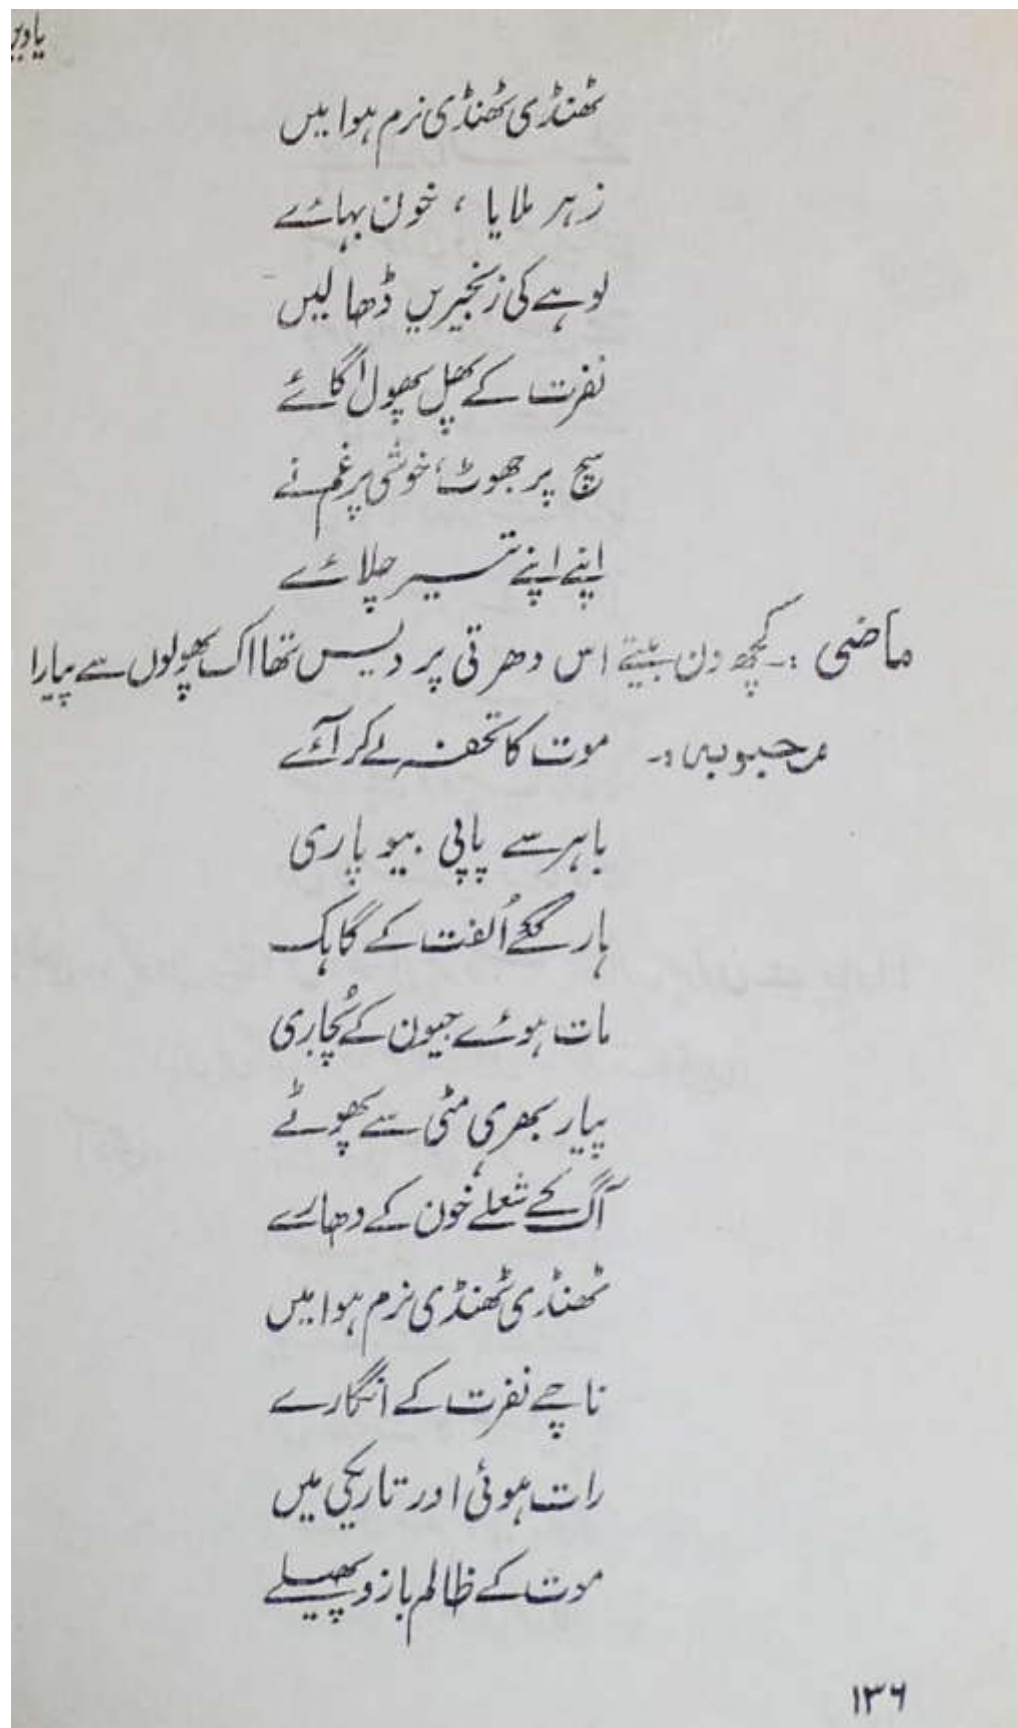 یادیں
ٹھنڈی ٹھنڈی نرم ہوا میں
زہر ملایا ، خون بہائے
لوہے کی زنجیریں ڈھالیں
نفرت کے پھل پھول اُگائے
سچ پر جھوٹ، خوشی پر غم نے
اپنے اپنے تیر چلائے
ماضی :۔ کچھ دن بیتے اس دھرتی پر دیس تھا اک پھولوں سے پیارا
محبوبہ :۔ موت کا تحفہ لے کر آئے
باہر سے پاپی بیوپاری
ہار گئے اُلفت کے گاہک
مات ہوئے جیون کے پُجاری
پیار بھری مٹی سے پھوٹے
آگ کے شعلے، خون کے دھارے
ٹھنڈی ٹھنڈی نرم ہوا میں
ناچے نفرت کے انگارے
رات ہوئی اور تاریکی میں
موت کے ظالم بازو پھیلے
۱۳۶